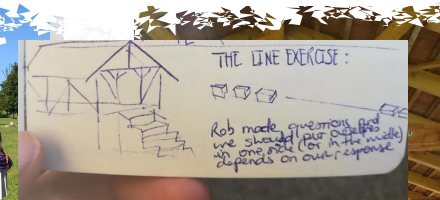 THE LINE EXERCISE :
Rob made questions and
we should put ourselves
in one side (or in the middle)
depends on our response